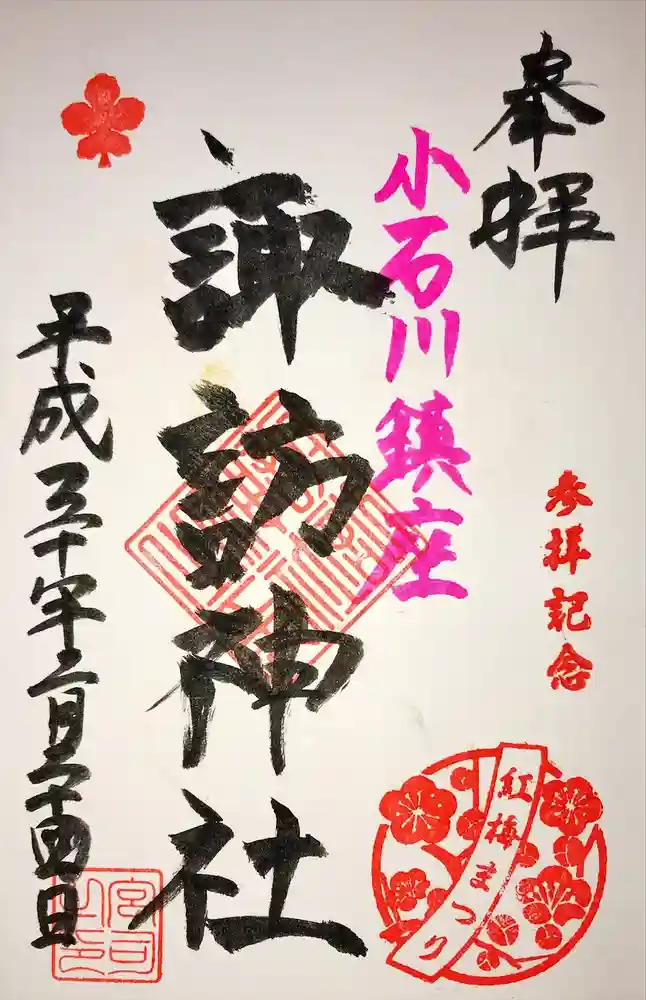 奉拝
小石川鎮座
諏訪神社
平成三十年二月二十四日
参拝記念
紅梅まつり
宮司之印